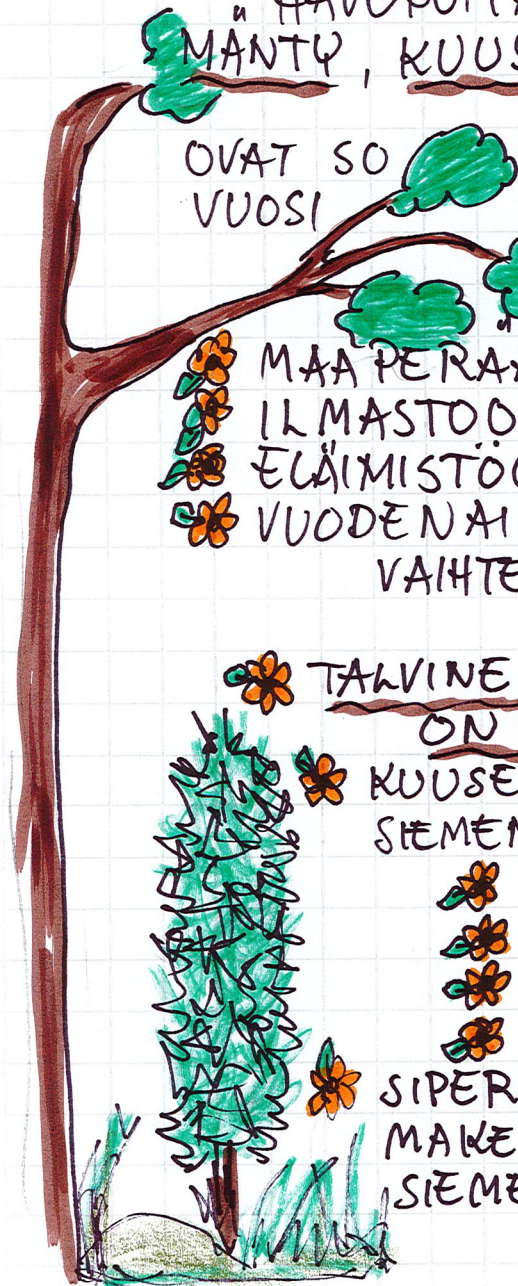 " HAVUPUITA
MÄNTY, KUUS
OVAT SO
VUOSI
MAAPERÄÄ
ILMASTOO
ELÄIMISTÖÖ
VUODENAI
VAIHTE
TALVINE
ON
KUUSE
SIEMEN
SIPER
MAKE
SIEME